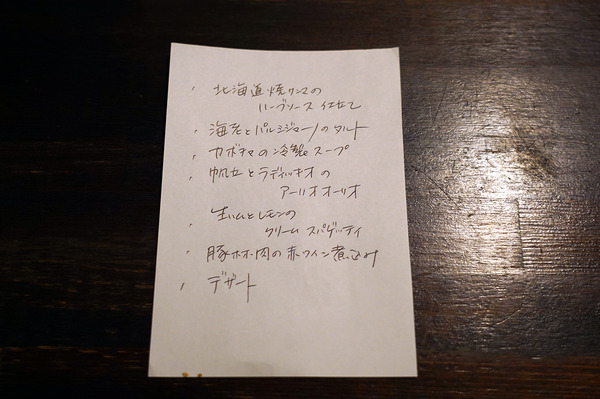 、北海道焼サンマの
ハーブソース仕立て
、海老とパルミジャーノのタルト
、カボチャの冷製スープ
、帆立とラディッキオの
アーリオオーリオ
、生ハムとレモンの
クリームスパゲッティ
、豚ホホ肉の赤ワイン煮込み
、デザート